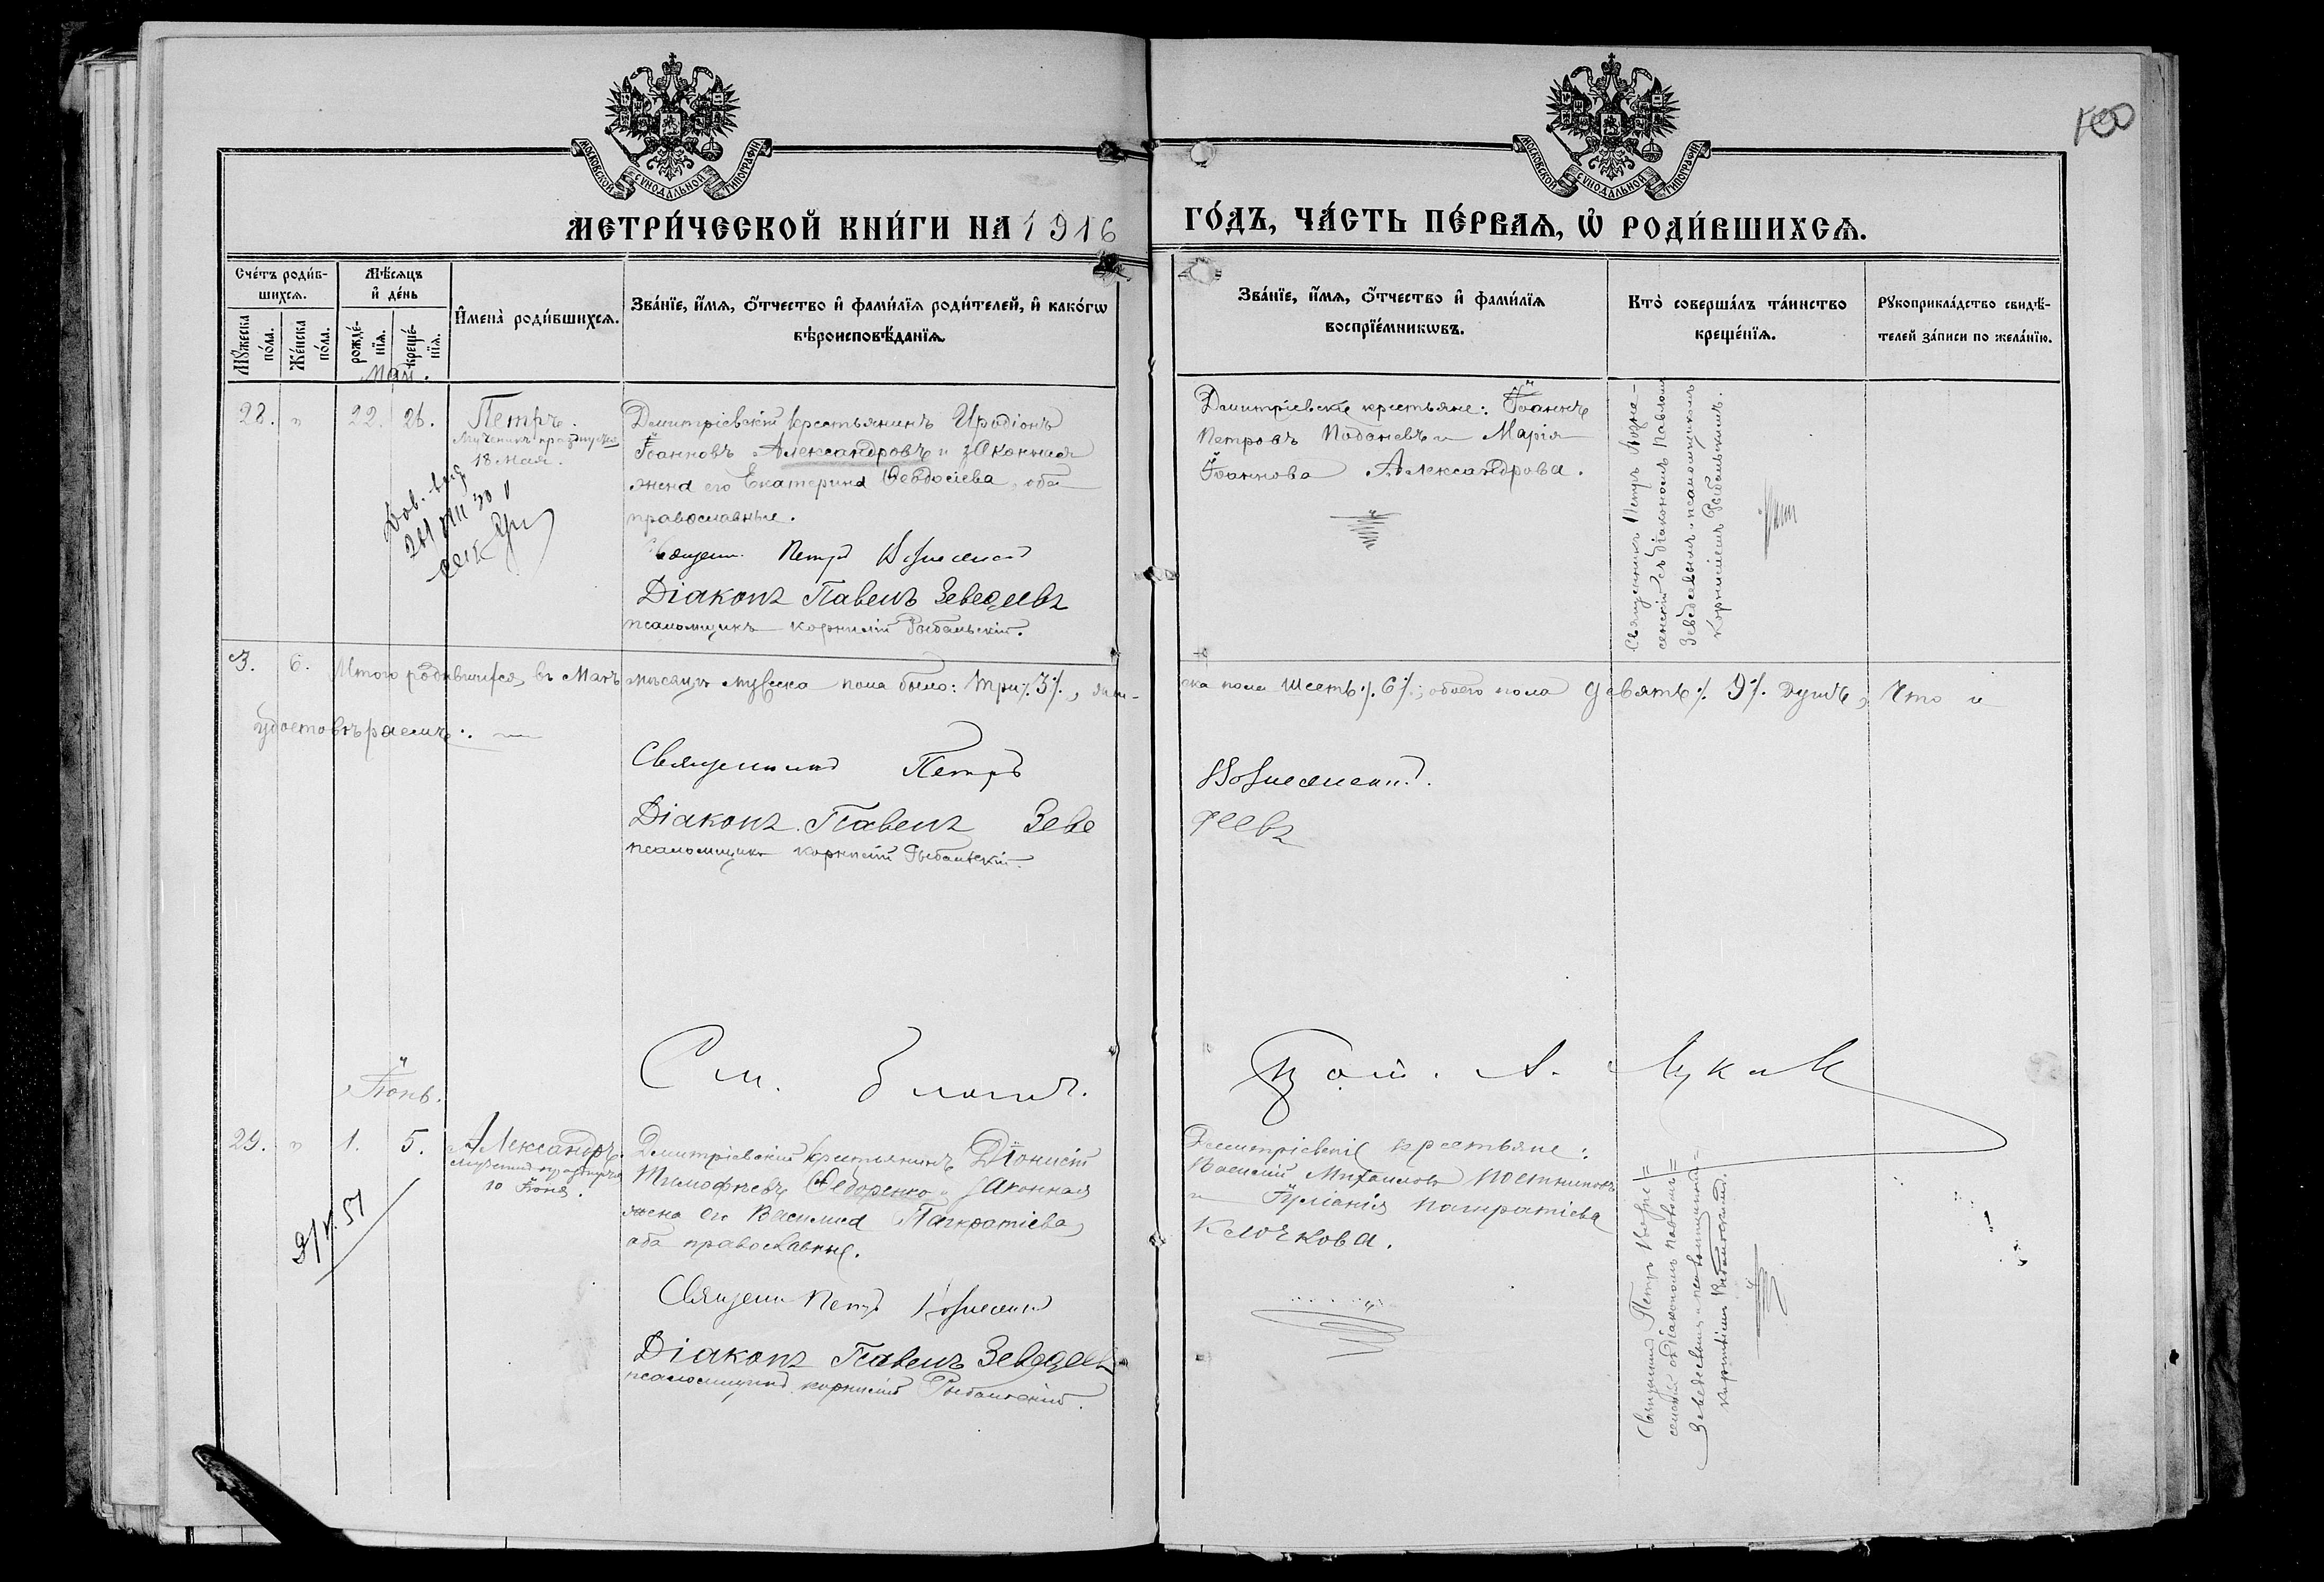 100
МОСКОВСКОЙ СѴНОДАЛЬНОЙ ТИПОГРАФІИ
МОСКОВСКОЙ СѴНОДАЛЬНОЙ ТИПОГРАФІИ
МЕТРИ́ЧЕСКОЙ КНИ́ГИ НА 1916
ГО́ДЪ, ЧА́СТЬ ПЕ́РВАѦ, Ѡ҆ РОДИ́ВШИХСѦ.
Сче́тъ роди́в-
шихсѧ.
Мꙋ́жеска
по́ла.
Же́нска
по́ла.
Мѣ́сѧцъ
и҆ де́нь
рожде́-
нїѧ.
креще́-
нїѧ.
И҆мена̀ роди́вшихсѧ.
Зва́нїе, и҆́мѧ, ѻ҆́тчество и҆ фами́лїѧ роди́телей, и҆ како́гѡ
вѣроисповѣ́данїѧ.
Зва́нїе, и҆́мѧ, ѻ҆́тчество и҆ фами́лїѧ
воспрїе́мникѡвъ.
Кто̀ соверша́лъ та́инство
креще́нїѧ.
Рꙋкоприкла́дство свидѣ́-
телей за́писи по жела́нїю.
Май.
28. " 22. 26.
Петръ.
Мученикъ празднуемъ
18 мая.
Дмитріевскій крестьянинъ Иродіонъ
Іоанновъ Александровъ и законная
жена его Екатерина Ѳеодосіева, оба
православные.
Священ. Петръ Вознесенскій
Діаконъ Павелъ Зеведеевъ
псаломщикъ Корнилій Рыбальскій.
Дмитріевскіе крестьяне: Іоаннъ
Петровъ и Марія
Іоаннова Александрова.
Священникъ Петръ Возне-
сенскій съ діакономъ Павломъ
Зеведеевымъ и псаломщикомъ
Корниліемъ Рыбальскимъ.
3. 6. Итого родившихся въ Маѣ мѣсяцѣ мужеска пола было: три ٪ 3 ٪, жен-
ска пола шесть ٪ 6 ٪; обоего пола девять ٪ 9 ٪ душъ, что и
удостовѣряемъ:
Священникъ Петръ Вознесенскій.
Діаконъ Павелъ Зеведеевъ
псаломщикъ Корнилій Рыбальскій.
См.
Іюнь.
29. " 1. 5.
Александръ.
мученикъ празднуемъ
10 Іюня.
Дмитріевскій крестьянинъ Діонисій
Тимофѣевъ Ѳедоренко и законная
жена его Василиса Панкратіева,
оба православные.
Священ Петръ Вознесенскій
Діаконъ Павелъ Зеведеевъ
псаломщикъ Корнилій Рыбальскій.
Дмитріевскіе крестьяне:
Василій Михаиловъ Постниковъ
и Іуліанія Панкратіева
Клочкова.
Священникъ Петръ Возне=
сенскій съ діакономъ Павломъ=
Зеведеевымъ и псаломщикомъ=
Корниліемъ Рыбальскимъ.